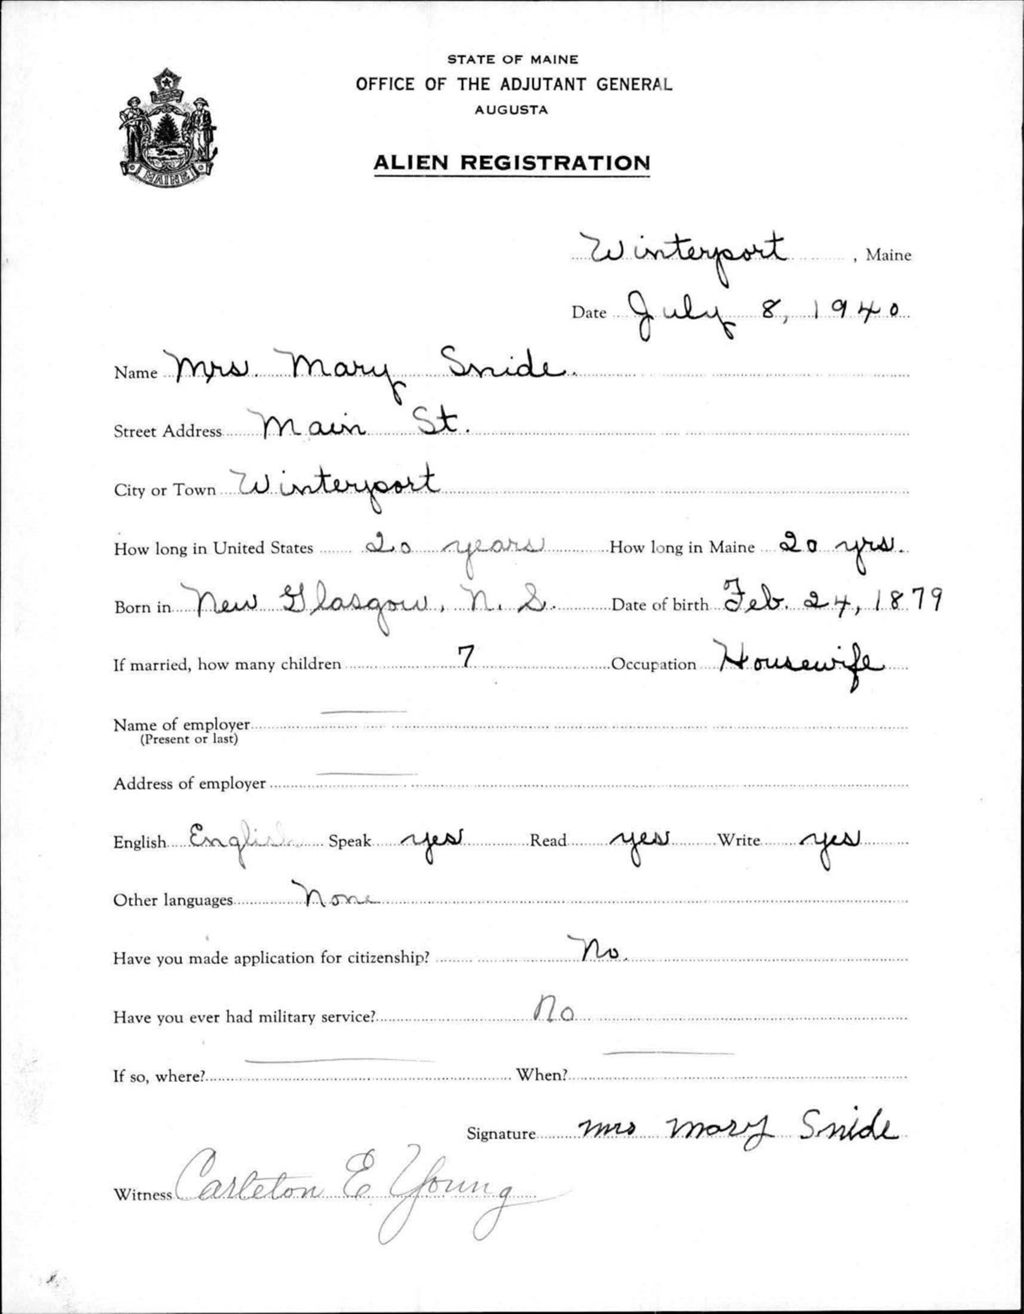 STATE OF MAINE
OFFICE OF THE ADJUTANT GENERAL
AUGUSTA
ALIEN REGISTRATION
MAINE
Winterport, Maine
Date July 8, 1940
Name Mrs. Mary Snide.
Street Address Main St.
City or Town Winterport
How long in United States 20 years How long in Maine 20 yrs.
Born in New Glasgow, N. S. Date of birth Feb. 24, 1879
If married, how many children 7 Occupation Housewife
Name of employer —
(Present or last)
Address of employer —
English English Speak yes Read yes Write yes
Other languages None
Have you made application for citizenship? No.
Have you ever had military service? No
If so, where? — When? —
Signature Mrs Mary Snide
Witness Carleton E Young